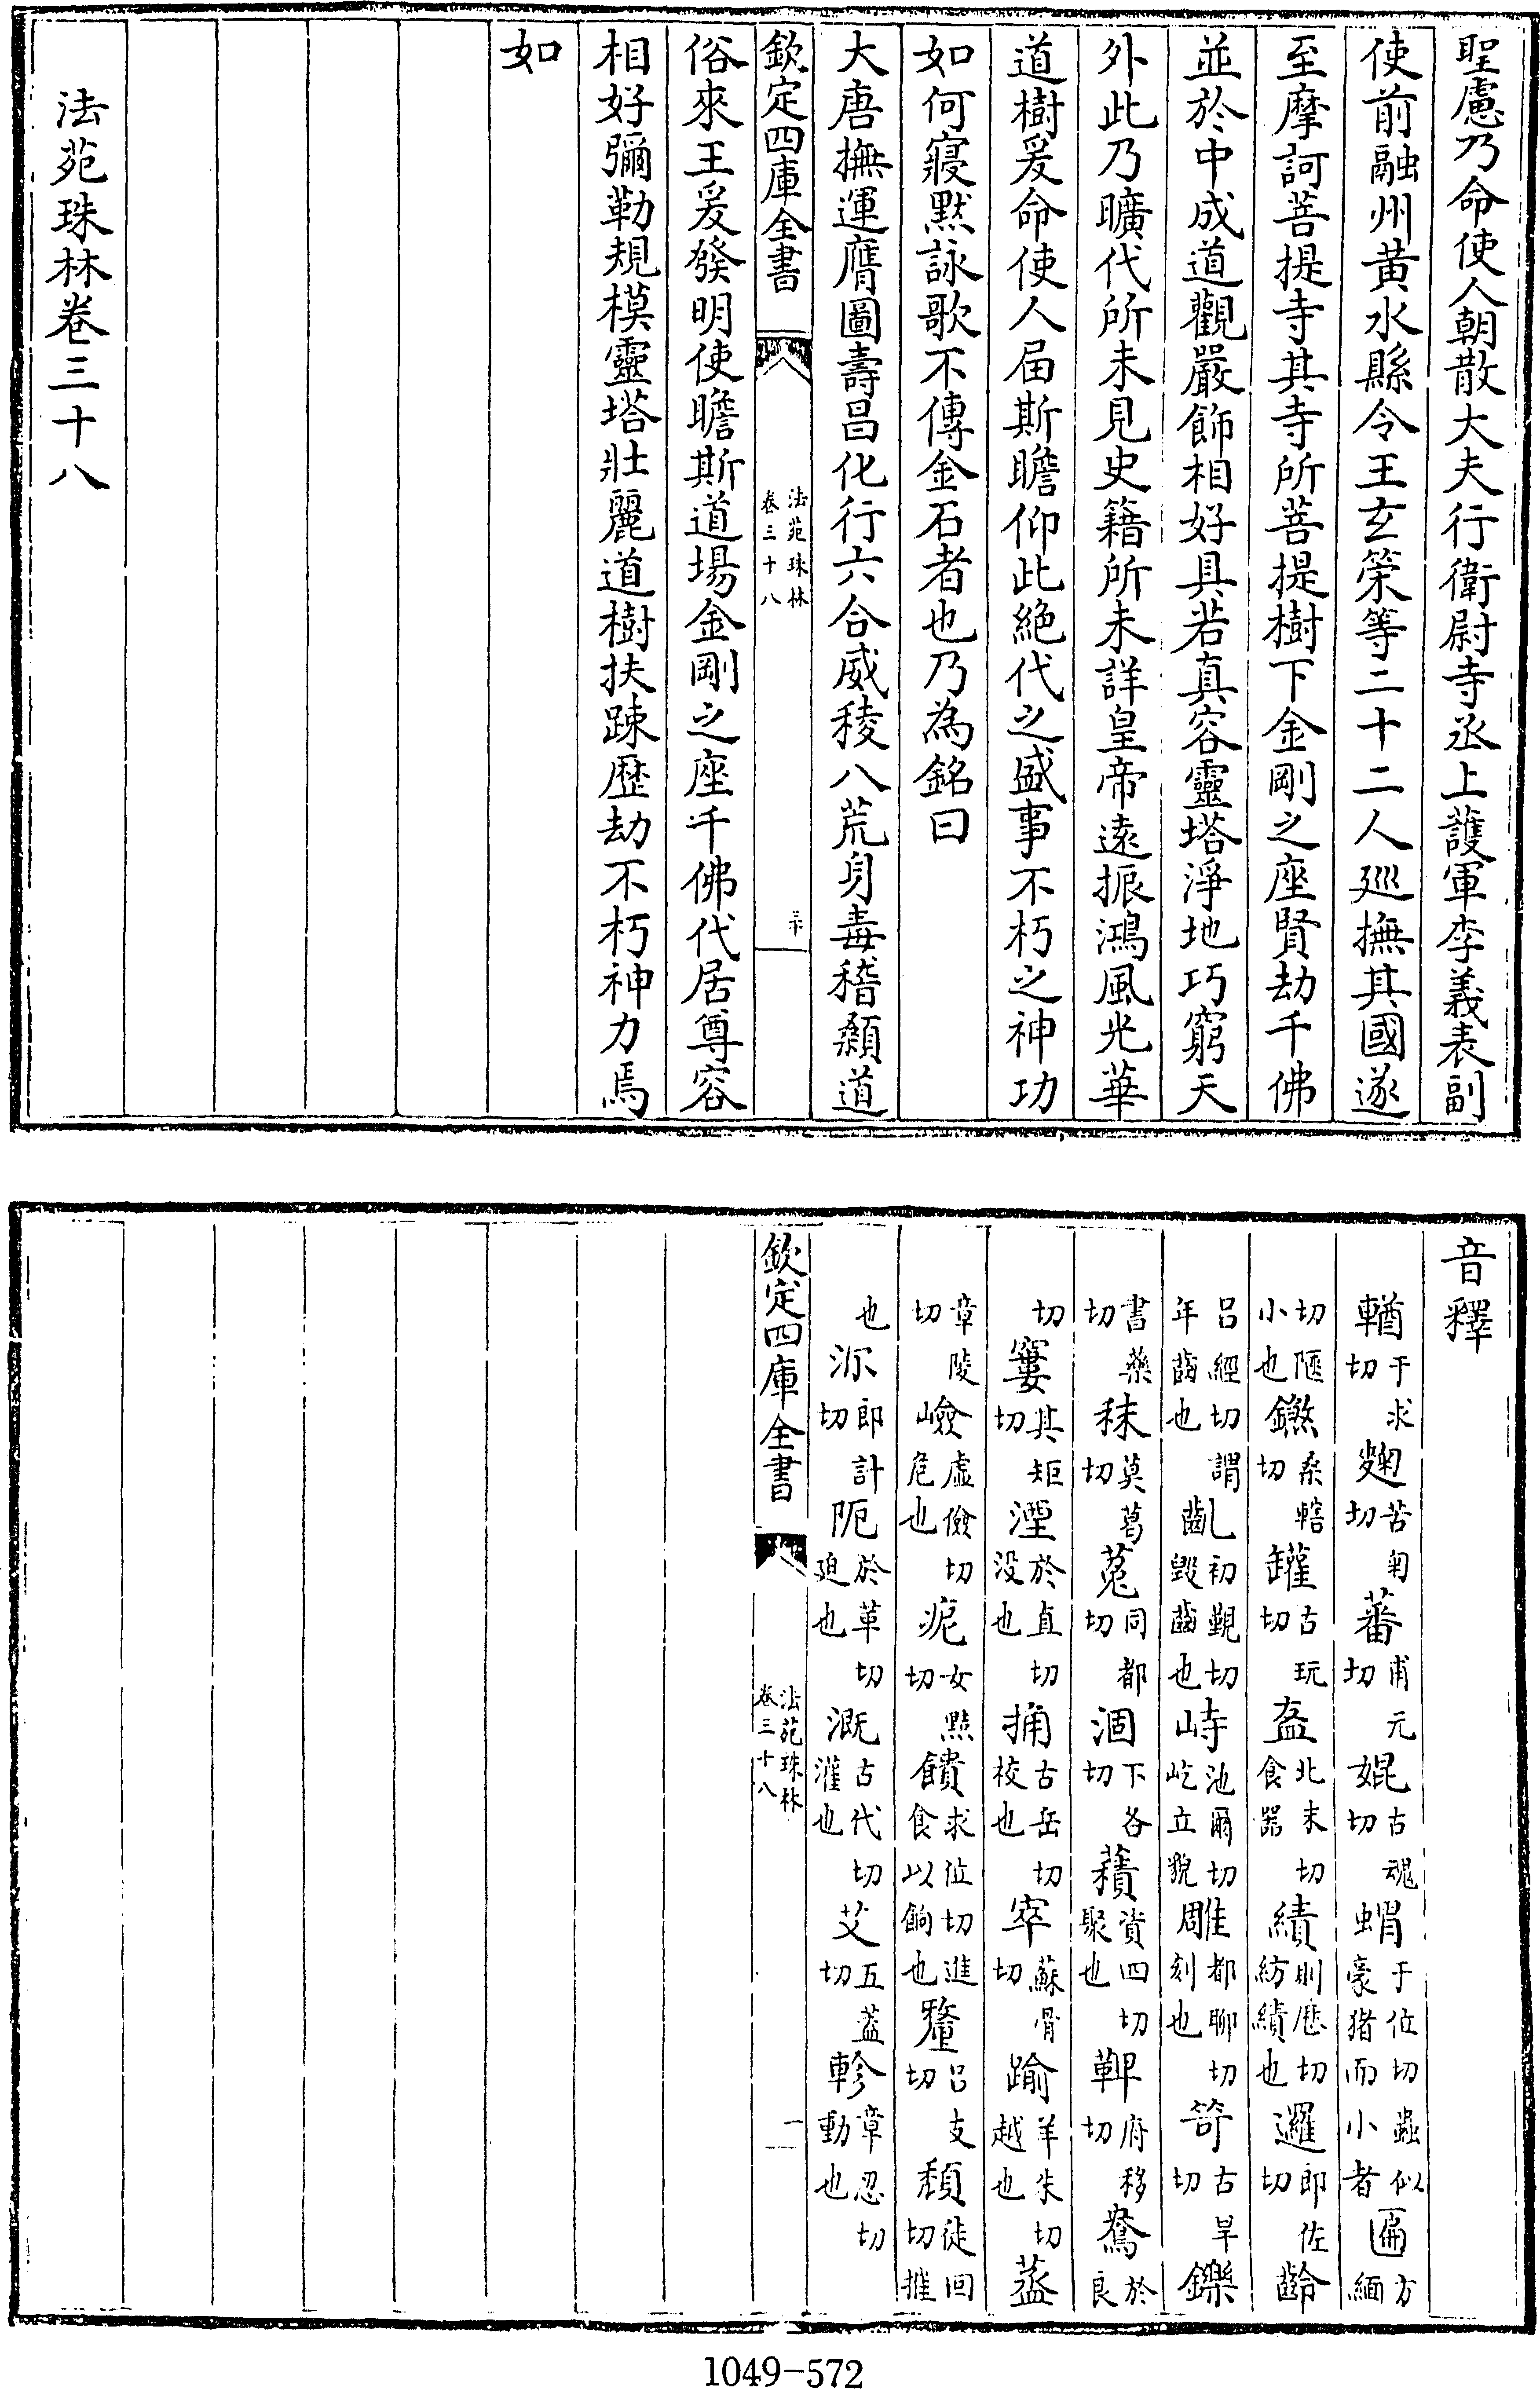 聖慮乃命使人朝散大夫行衛尉寺丞上護軍李義表副
使前融州黄水縣令王玄策等二十二人巡撫其國遂
至摩訶菩提寺其寺所菩提樹下金剛之座賢劫千佛
並於中成道觀嚴飾相好具若真容靈塔淨地巧窮天
外此乃曠代所未見史籍所未詳皇帝遠振鴻風光華
道樹爰命使人届斯瞻仰此絶代之盛事不朽之神功
如何寢默詠歌不傳金石者也乃為銘曰
大唐撫運膺圖壽昌化行六合威稜八荒身毒稽顙道
欽定四庫全書
法苑珠林
卷三十八
三十
俗來王爰發明使瞻斯道場金剛之座千佛代居尊容
相好彌勒規模靈塔壯麗道樹扶踈歷劫不朽神力焉
如
法苑珠林卷三十八
音釋
輶于求切麴苦匊切蕃甫元切婫古魂切蝟于位切蟲似豪猪而小者匾方緬
切匾㔸小也鐓桑轄切罐古玩切盋北末切食器績則歴切紡績也邏郎佐切齡
吕經切謂年齒也齓初覲切毁齒也峙池爾切屹立貌雕都聊切刻也笴古旱切鑠
書藥切秣莫葛切菟同都切涸下各切積資四切聚也鞞府移切鴛於良
切窶其矩切湮於真切没也捔古岳切校也窣蘇骨切踰羊朱切越也蒸
章陵切嶮虚儉切危也痆女黠切饋求位切進食以餉也釐吕支切頽徒回切摧
也沵郎計切阨於革切迫也溉古代切灌也艾五蓋切軫章忍切動也
欽定四庫全書
法苑珠林
卷三十八
一
1049-572